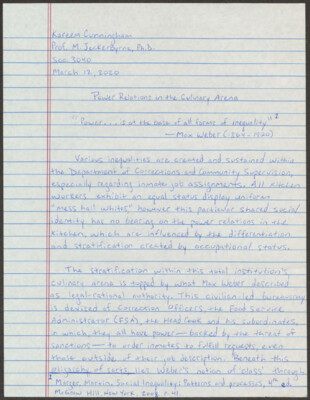 Kareem Cunningham
Prof. M. Juckerbyrne, Ph.D.
Soc. 3040
March 12, 2020
Power Relations in the Culinary Arena
"Power... is at the base of all forms of inequality" 1
— Max Weber (1864-1920)
Various inequalities are created and sustained within
the Department of Corrections and Community Supervision,
especially regarding inmate job assignments. All kitchen
workers exhibit an equal status display uniform:
"mess hall whites" however this particular shared social
identity has no bearing on the power relations in the
kitchen, which are influenced by the differentiation
and stratification created by occupational status.
The stratification within this total institution's
culinary arena is topped by what Max Weber described
as legal-rational authority. This civilian led bureaucracy
is devised of Correction Officers, the Food Service
Administrator (FSA), the Head Cook and his subordinates,
in which, they all have power — backed by the threat of
sanctions — to order inmates to fulfill requests, even
those outside of their job description. Beneath this
oligarchy of sorts, lies Weber's notion of 'class' through
1 Marger, Martin, Social Inequality: Patterns and processes, 4th ed
McGraw Hill, New York, 2008